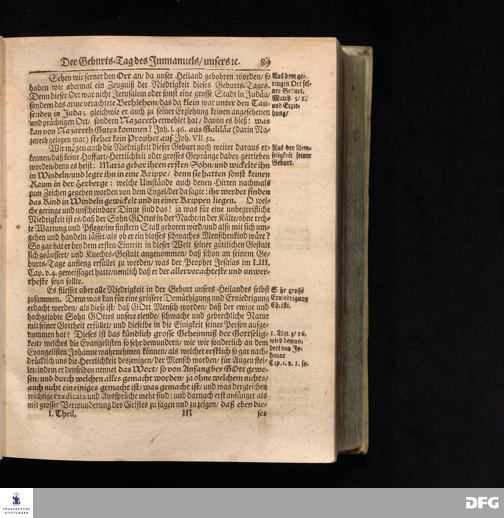 Der Geburts-Tag des Immanuels/ unsers ꝛc. 89
Sehen wir ferner den Ort an/ da unser Heiland gebohren worden/ so
haben wir abermal ein Zeugniß der Niedrigkeit dieses Geburts-Tages.
Denn dieser Ort war nicht Jerusalem oder sonst eine grosse Stadt in Judäa/
sondern das arme verachtete Bethlehem/ das da klein war unter den Tau-
senden in Juda; gleichwie er auch zu seiner Erziehung keinen angesehenen
und prächtigen Ort/ sondern Nazareth erwehlet hat/ davon es hieß: was
kan von Nazareth Gutes kommen? Joh. I. 46. aus Galiläa (darin Na-
zareth gelegen war) stehet kein Prophet auf Joh. VII. 52.
Wir mögen auch die Niedrigkeit dieser Geburt noch weiter daraus er-
kennen/ daß keine Hoffart/ Herrlichkeit oder grosses Gepränge dabey getrieben
worden/ denn es heist: Maria gebar ihren ersten Sohn/ und wickelte ihn
in Windeln/ und legte ihn in eine Krippe/ denn sie hatten sonst keinen
Raum in der Herberge: welche Umstände auch denen Hirten nachmals
zum Zeichen gegeben worden von dem Engel/ der da sagte: ihr werdet finden
das Kind in Windeln gewickelt und in einer Krippen liegen. O wel-
che geringe und unscheinbare Dinge sind das! ja was für eine unbegreifliche
Niedrigkeit ist es/ daß der Sohn GOttes in der Nacht/ in der Kälte/ ohne rech-
te Wartung und Pflege/ im finstern Stall geboren wird/ und also mit sich um-
gehen und handeln lässet/ als ob er ein blosses schwaches Menschenkind wäre?
So gar hat er bey dem ersten Eintritt in dieser Welt seiner göttlichen Gestalt
sich geäussert/ und Knechts-Gestalt angenommen/ daß schon an seinem Ge-
burts-Tage anfieng erfüllet zu werden/ was der Prophet Jesaias im LIII.
Cap. v. 4. geweissaget hatte/ nemlich daß er der allerverachteste und unwer-
theste seyn sollte.
Es fliesset aber alle Niedrigkeit in der Geburt unsers Heilandes selbst
zusammen. Denn was kan für eine grössere Demüthigung und Erniedrigung
erdacht werden/ als diese ist: daß GOtt Mensch worden/ daß der ewige und
hochgelobte Sohn GOttes unsere elende/ schwache und gebrechliche Natur
mit seiner Gottheit erfüllet/ und dieselbe in die Einigkeit seiner Person aufge-
nommen hat? Dieses ist das kündlich grosse Geheimniß der Gottselig-
keit/ welches die Evangelisten so sehr bewundern/ wie wir sonderlich an dem
Evangelisten Johanne wahrnehmen können/ als welcher erstlich so gar nach-
drücklich uns die Herrlichkeit desjenigen/ der Mensch worden/ für Augen stel-
let/ indem er denselben nennet das Wort/ so von Anfang bey GOtt gewe-
sen/ und durch welchen alles gemacht worden/ ja ohne welchem nichts/
auch nicht ein einiges gemacht ist/ was gemacht ist/ und was dergleichen
wichtige Prædicata und Aussprüche mehr sind: und darnach erst anfänget als
mit grosser Verwunderung des Geistes zu sagen und zu zeigen/ daß eben die-
I. Theil. M ses
Aus dem ge-
ringen Ort sei-
ner Geburt.
Matth. 5/ 1.
und Erzie-
hung/
Aus der Nie-
drigkeit seiner
Geburt.
Sehr grosse
Erniedrigung
Christi.
1. Tim. 3/ 16.
wird bewun-
dert von Jo-
hanne
Cap. 1. v. 1. sq.
FRANCKESCHE
STIFTUNGEN
DFG